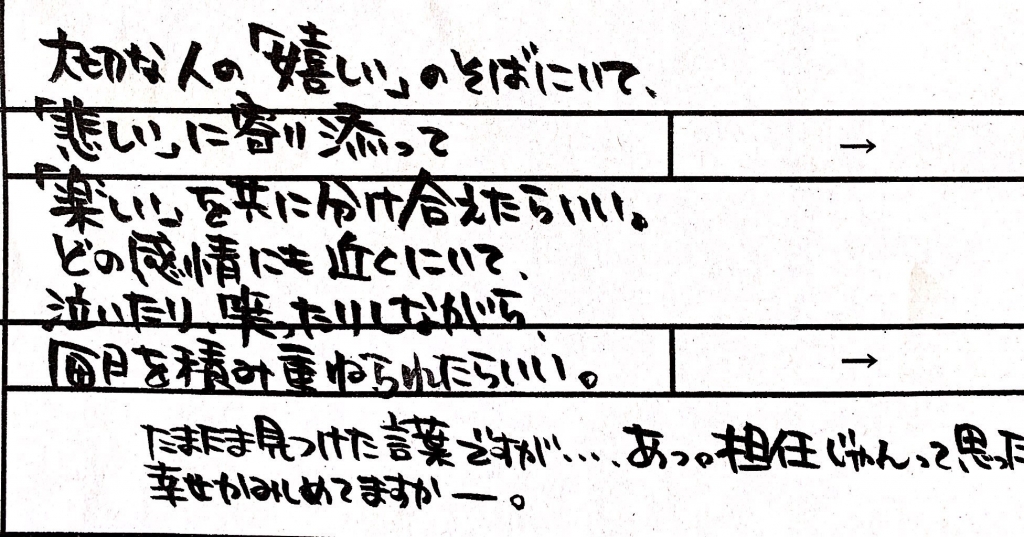 大切な人の「嬉しい」のそばにいて、
「悲しい」に寄り添って
→
「楽しい」を共に分け合えたらいい。
どの感情にも近くにいて、
泣いたり、笑ったりしながら、
毎日を積み重ねられたらいい。
→
たまたま見つけた言葉ですが‥‥、あっ。担任じゃんって思った
幸せかみしめてますかー。